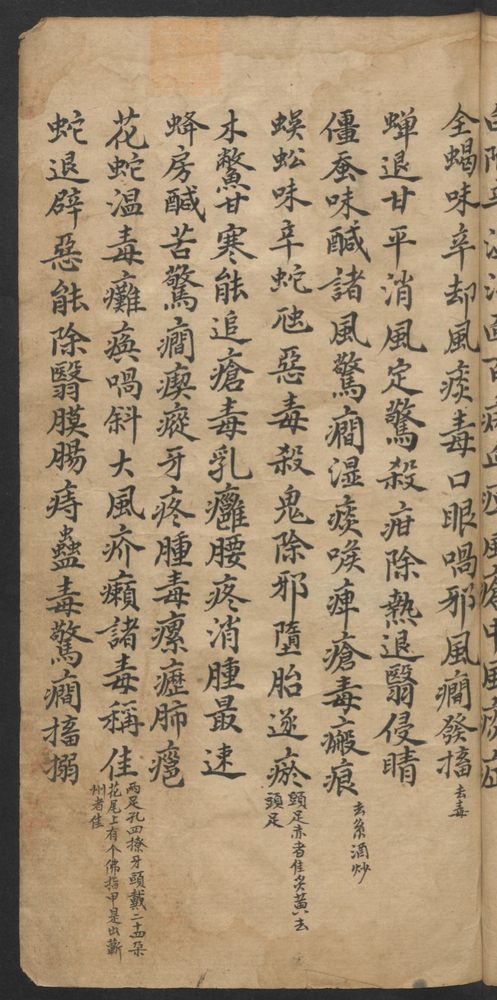 全蝎味辛却風痰毒口眼喎邪風癇發搐去毒
蟬退甘平消風定驚殺疳除熱退翳侵睛
僵蚕味醎諸風驚癇湿痰喉痺瘡毒瘢痕去糸酒炒
蜈蚣味辛蛇虺惡毒殺鬼除邪墮胎逐瘀頭足赤者佳炙黄去頭足
木鱉甘寒能追瘡毒乳癰腰疼消腫最速
蜂房醎苦驚癇瘈瘲牙疼腫毒瘰癧肺癰
花蛇温毒癱瘓喎斜大風疥癩諸毒稱佳両足孔四撩牙頭戴二十四朶花尾上有个佛指甲是出蘄州者佳
蛇退辟惡能除翳膜腸痔蠱毒驚癇搐搦